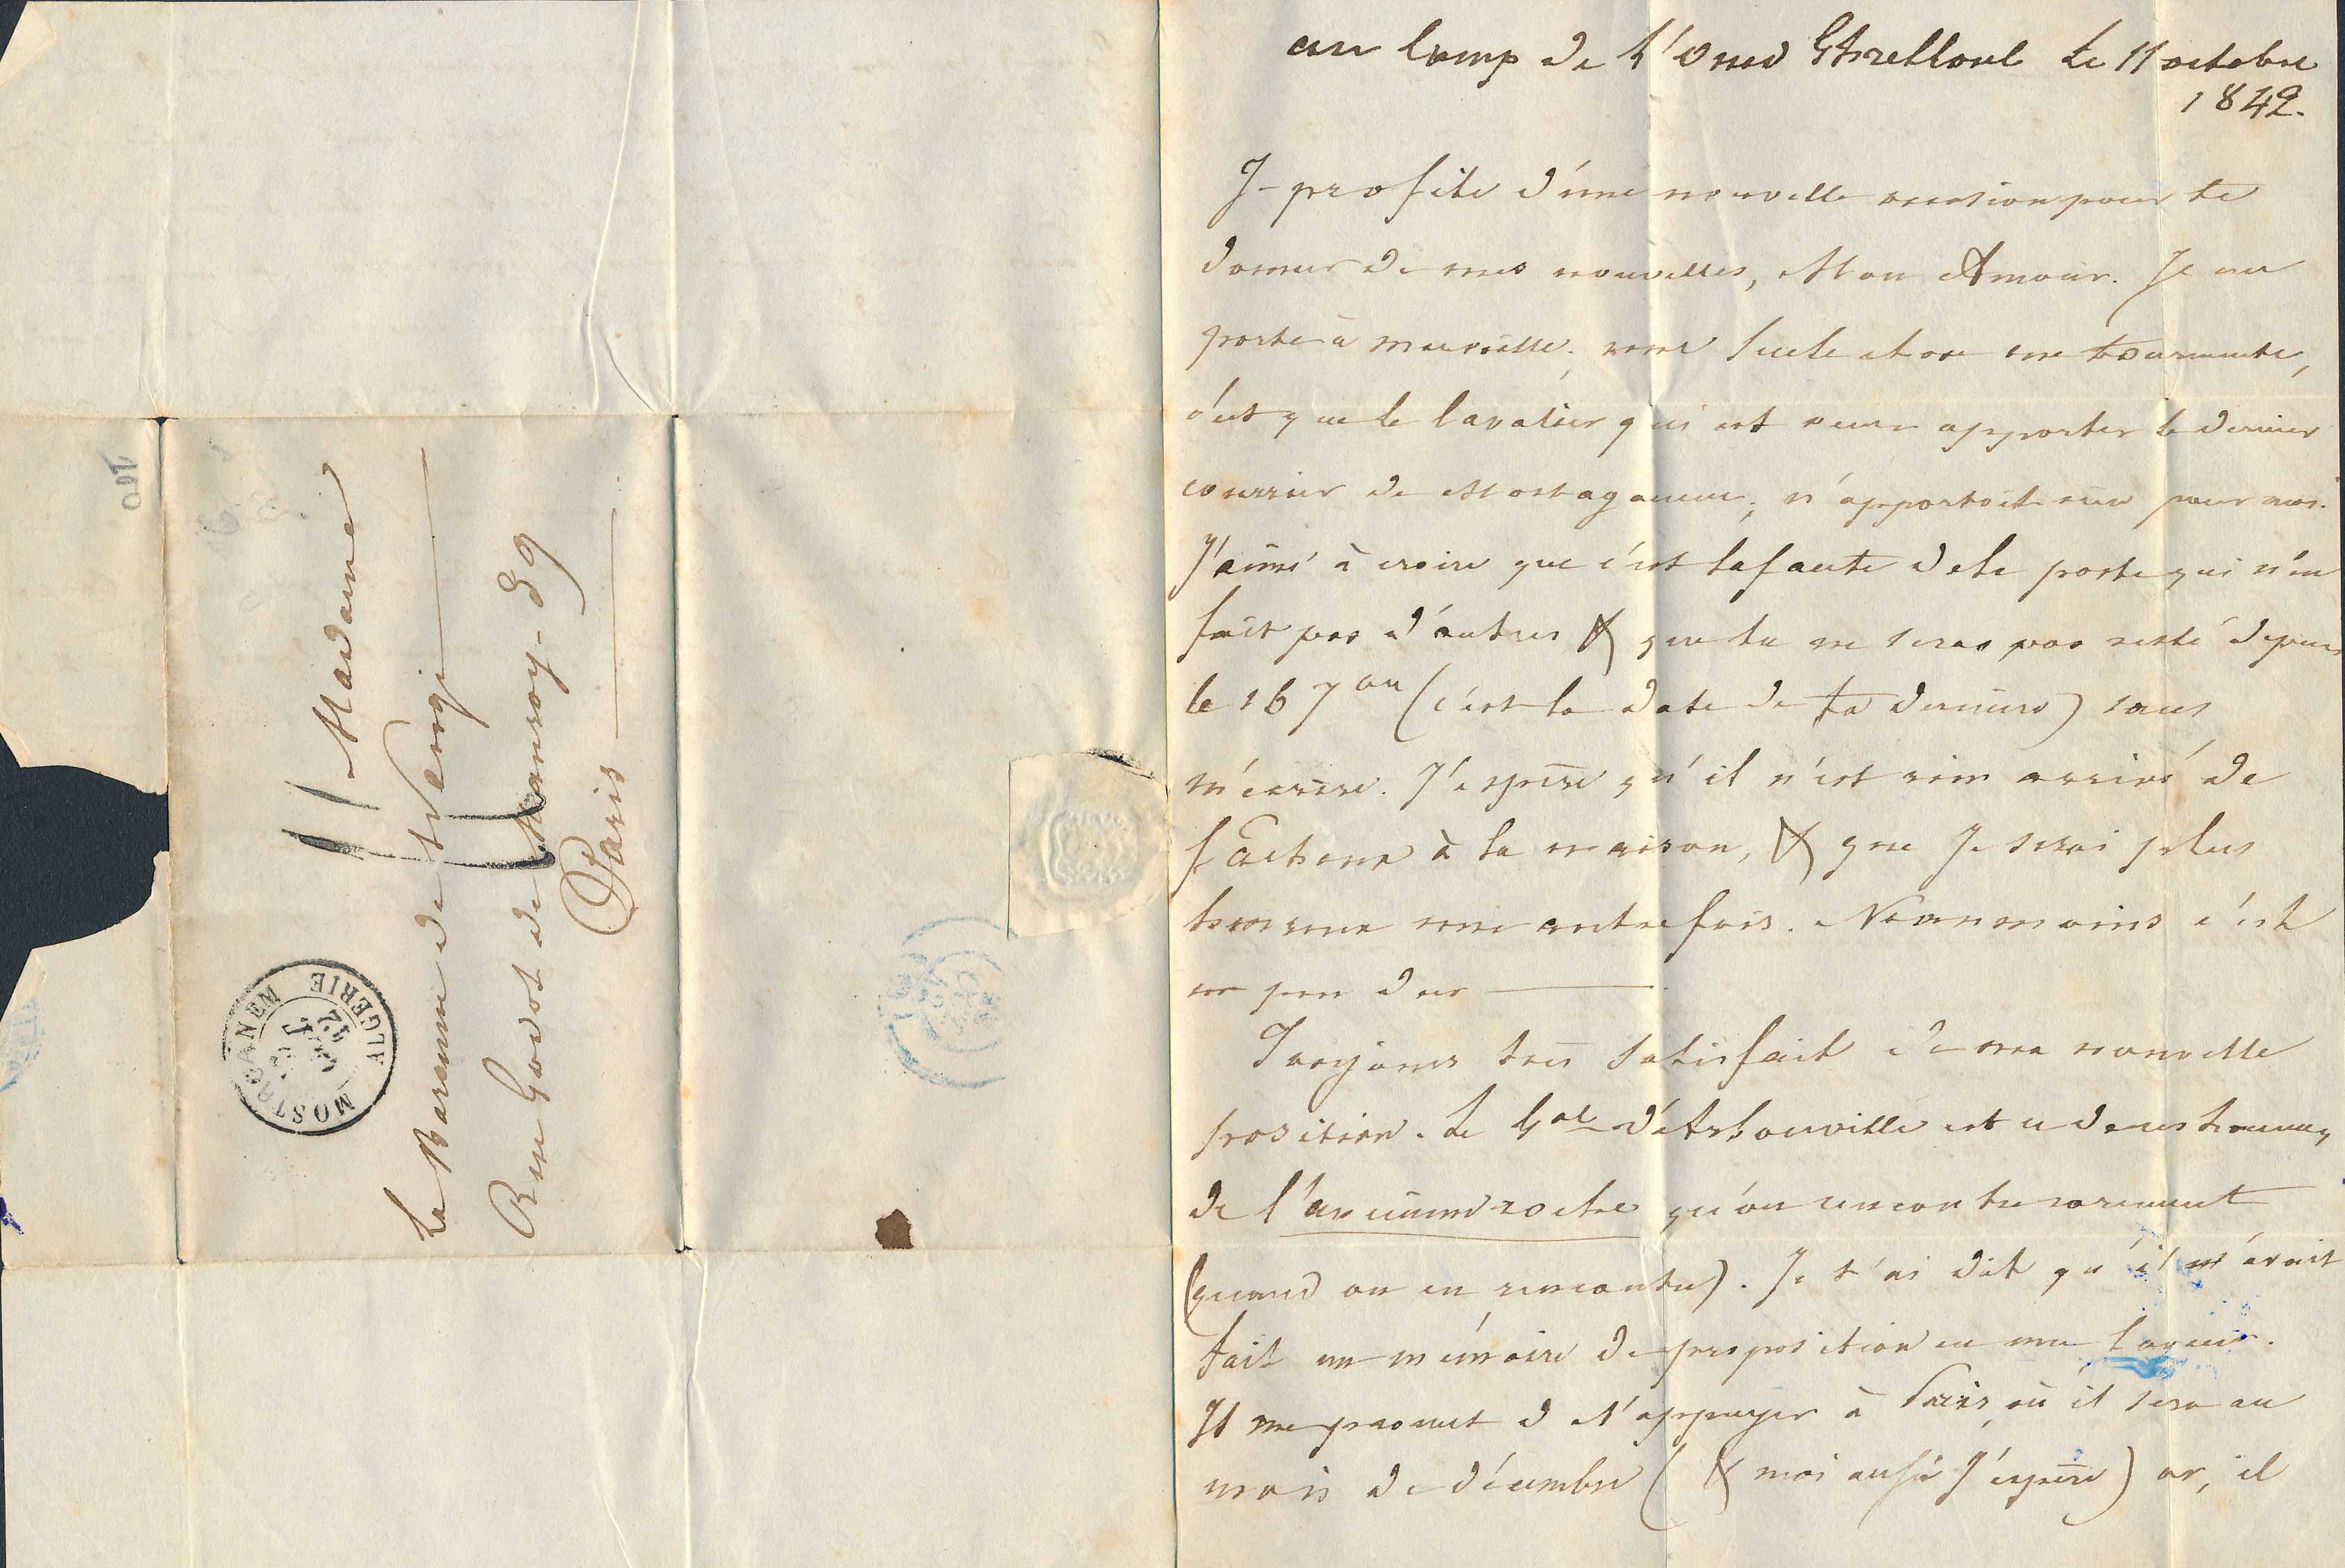 Madame
La Baronne de Wengi
Rue Godot de Mauroy - 39
Paris
MOSTAGANEM ALGERIE
42
au Camp de l'Oued Le 11 octobre
1842.
Je profite d'une nouvelle occasion pour te
donner de mes nouvelles, Mon Amour. Je me
porte à merveille; une seule chose me tourmente,
c'est que le Cavalier qui est venu apporter le dernier
courrier de Mostaganem, n'apportoit rien pour moi.
J'aime à croire que c'est la faute de la poste qui n'en
fait pas d'autres & que tu ne seras pas resté depuis
le 16 7bre (c'est la date de ta dernière) sans
m'écrire. J'espère qu'il n'est rien arrivé de
facheux à la maison, & que je serai plus
heureux une autre fois. Néanmoins c'est
un peu dur
Toujours très satisfait de ma nouvelle
position. Le Gal d'Arbouville est un de ces hommes
de l'ancienne roche qu'on rencontre rarement
(quand on en rencontre). Je t'ai dit qu'il m'avait
fait un mémoire de proposition en ma faveur.
Il me promet de l'appuyer à Paris, où il sera au
mois de décembre (& moi aussi j'espère) or, il